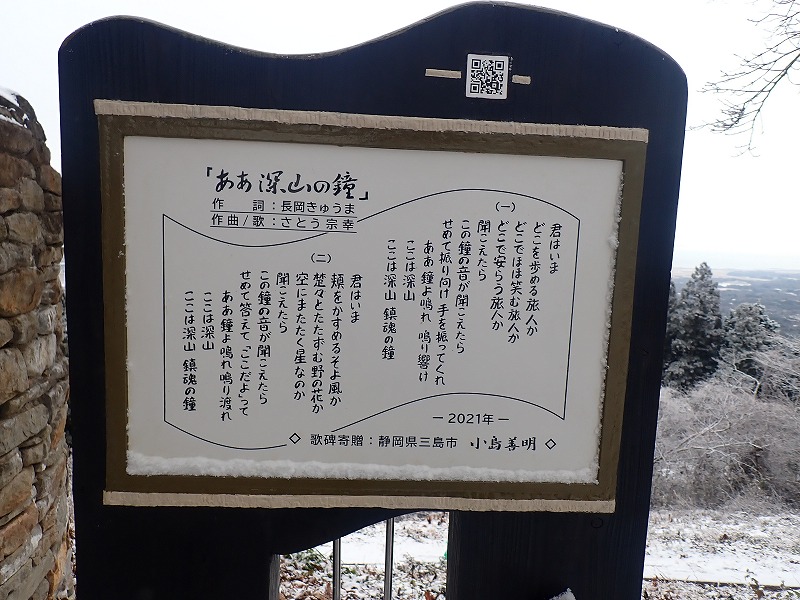 「ああ深山の鐘」
作　詞：長岡きゅうま
作曲/歌：さとう宗幸
（一）
君はいま
どこを歩める旅人か
どこでほほ笑む旅人か
どこで安らう旅人か
聞こえたら
この鐘の音が聞こえたら
せめて振り向け 手を振ってくれ
ああ鐘よ鳴れ 鳴り響け
ここは深山
ここは深山 鎮魂の鐘
（二）
君はいま
頬をかすめるそよ風か
楚々とたたずむ野の花か
空にまたたく星なのか
聞こえたら
この鐘の音が聞こえたら
せめて答えて「ここだよ」って
ああ鐘よ鳴れ鳴り渡れ
ここは深山
ここは深山 鎮魂の鐘
－2021年－
◇ 歌碑寄贈：静岡県三島市 小島善明 ◇